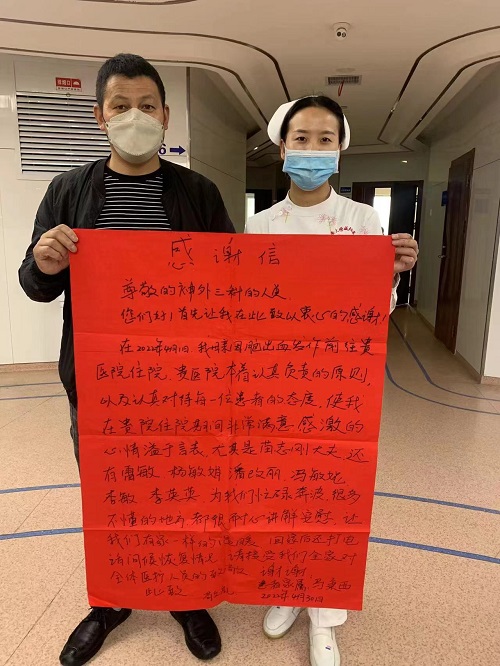 感谢信
尊敬的神外三科的人员
您们好！首先让我在此致以衷心的感谢！
在2022年4月1日，我母亲因脑出血发作前往贵
医院住院，贵医院本着认真负责的原则，
以及认真对待每一位患者的态度，使我
在贵院住院期间非常满意，感激的
心情溢于言表，尤其是苗志刚大夫，还
有雷敏 杨敏娟 潘改丽 冯敏妮
李敏 李英英 为我们忙碌奔波，很多
不懂的地方都很耐心讲解安慰，让
我们有家一样的温暖 回家后还打电
话问候恢复情况 请接受我们全家对
全体医护人员的
谢谢
此致
患者家属
2022年4月30日